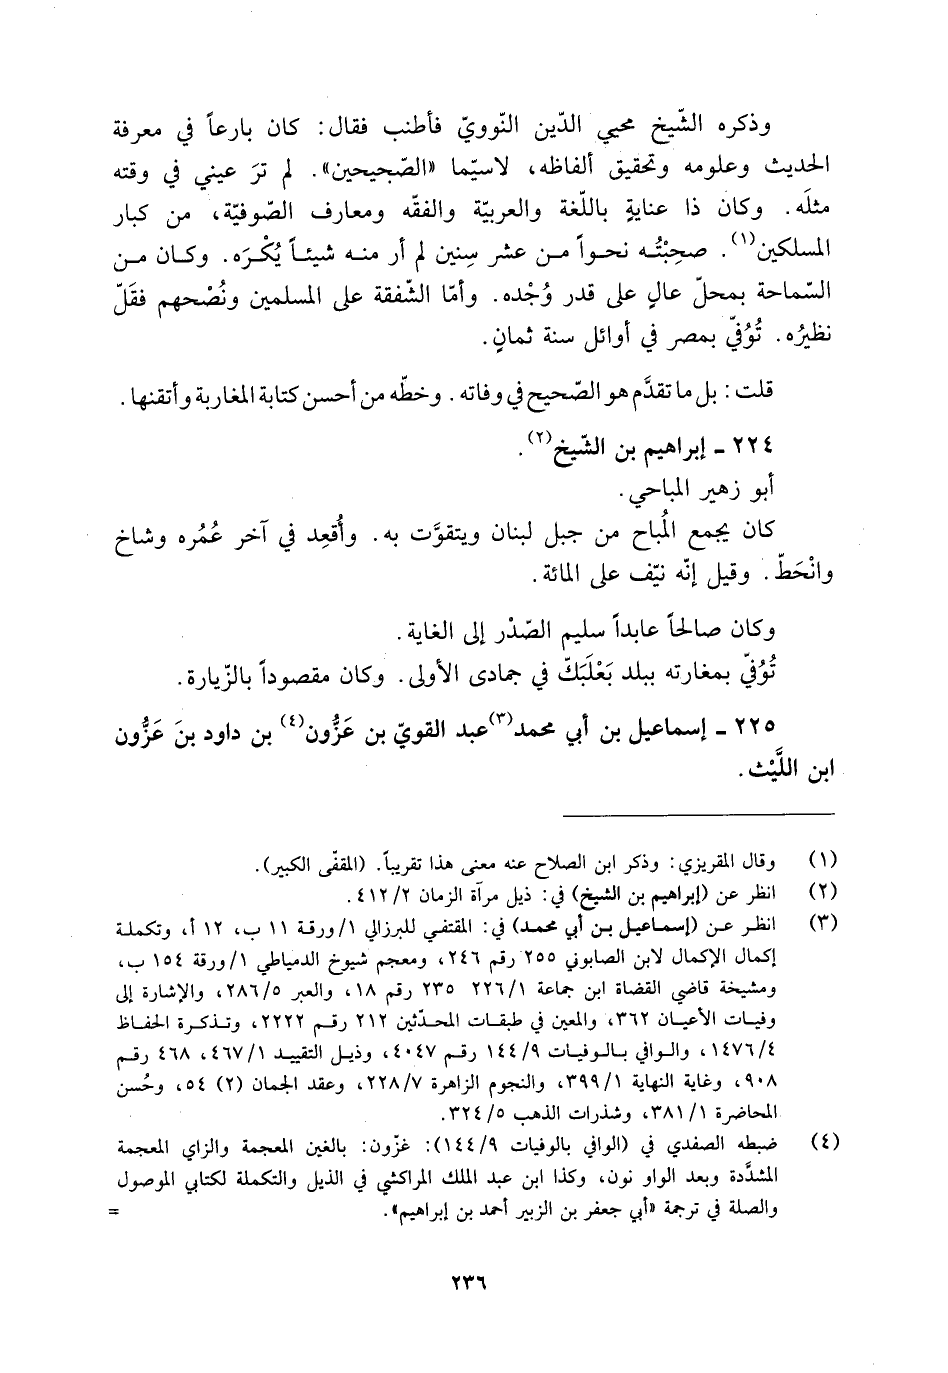 وذكره الشّيخ محيي الدّين النّوويّ فأطنب فقال: كان بارعاً في معرفة
الحديث وعلومه وتحقيق ألفاظه، لاسيّما «الصّحيحين». لم ترَ عيني في وقته
مثلَه. وكان ذا عنايةٍ باللّغة والعربيّة والفقّه ومعارف الصّوفيّة، من كبار
المسلكين(١). صحِبْتُه نحواً من عشر سِنين لم أر منه شيئاً يُكْرَه. وكان من
السّماحة بمحلّ عالٍ على قدر وُجْده. وأمّا الشّفقة على المسلمين ونُصْحهم فقَلّ
نظيرُه. تُوُفّي بمصر في أوائل سنة ثمانٍ.
قلت: بل ما تقدَّم هو الصّحيح في وفاته. وخطّه من أحسن كتابة المغاربة وأتقنها.
٢٢٤ ـ إبراهيم بن الشّيخ(٢).
أبو زهير المباحي.
كان يجمع المُباح من جبل لبنان ويتقوَّت به. وأُقعِد في آخر عُمُره وشاخ
وانْحَطّ. وقيل إنّه نيّف على المائة.
وكان صالحاً عابداً سليم الصّدْر إلى الغاية.
تُوُفّي بمغارته ببلد بَعْلَبَكّ في جمادى الأولى. وكان مقصوداً بالزّيارة.
٢٢٥ ـ إسماعيل بن أبي محمد(٣)عبد القويّ بن عَزُّون(٤) بن داود بنَ عَزُّون
ابن اللَّيْث.
(١) وقال المقريزي: وذكر ابن الصلاح عنه معنى هذا تقريباً. (المقفّى الكبير).
(٢) انظر عن (إبراهيم بن الشيخ) في: ذيل مرآة الزمان ٤١٢/٢.
(٣) انظر عن (إسماعيل بن أبي محمد) في: المقتفي للبرزالي ١/ورقة ١١ ب، ١٢ أ، وتكملة
إكمال الإكمال لابن الصابوني ٢٥٥ رقم ٢٤٦، ومعجم شيوخ الدمياطي ١/ورقة ١٥٤ ب،
ومشيخة قاضي القضاة ابن جماعة ٢٢٦/١ ٢٣٥ رقم ١٨، والعبر ٢٨٦/٥، والإشارة إلى
وفيات الأعيان ٣٦٢، والمعين في طبقات المحدّثين ٢١٢ رقم ٢٢٢٢، وتذكرة الحفاظ
١٤٧٦/٤، والوافي بالوفيات ١٤٤/٩ رقم ٤٠٤٧، وذيل التقييد ٤٦٧/١، ٤٦٨ رقم
٩٠٨، وغاية النهاية ٣٩٩/١، والنجوم الزاهرة ٢٢٨/٧، وعقد الجمان (٢) ٥٤، وحُسن
المحاضرة ٣٨١/١، وشذرات الذهب ٣٢٤/٥.
(٤) ضبطه الصفدي في (الوافي بالوفيات ١٤٤/٩): غزّون: بالغين المعجمة والزاي المعجمة
المشدَّدة وبعد الواو نون، وكذا ابن عبد الملك المراكشي في الذيل والتكملة لكتابي الموصول
والصلة في ترجمة «أبي جعفر بن الزبير أحمد بن إبراهيم». =
٢٣٦